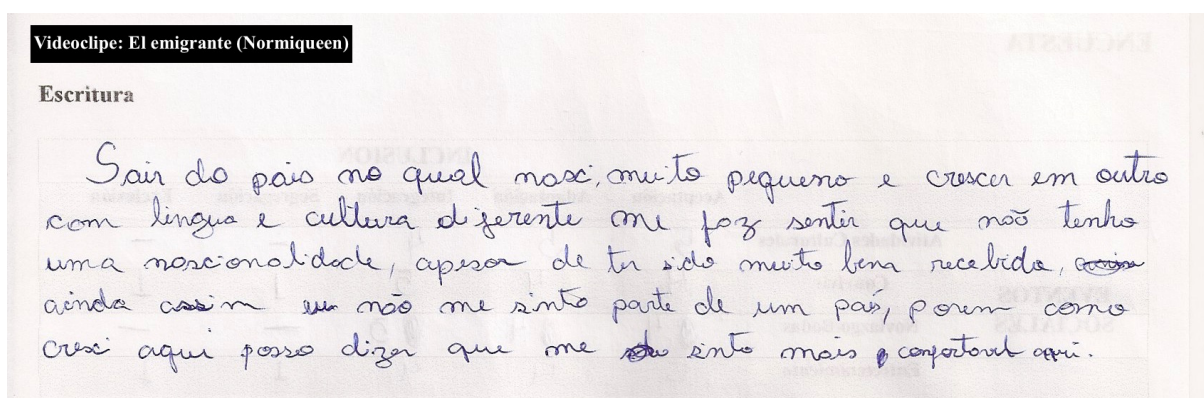 Videoclipe: El emigrante (Normiqueen)
Escritura
Sair do pais no qual nasci, muito pequeno e crescer em outro
com lingua e cultura diferente me faz sentir que não tenho
uma nascionalidade, apesar de ter sido muito bem recebida,
ainda assim eu não me sinto parte de um país, porem como
cresci aqui posso dizer que me sinto mais confortavel aqui.